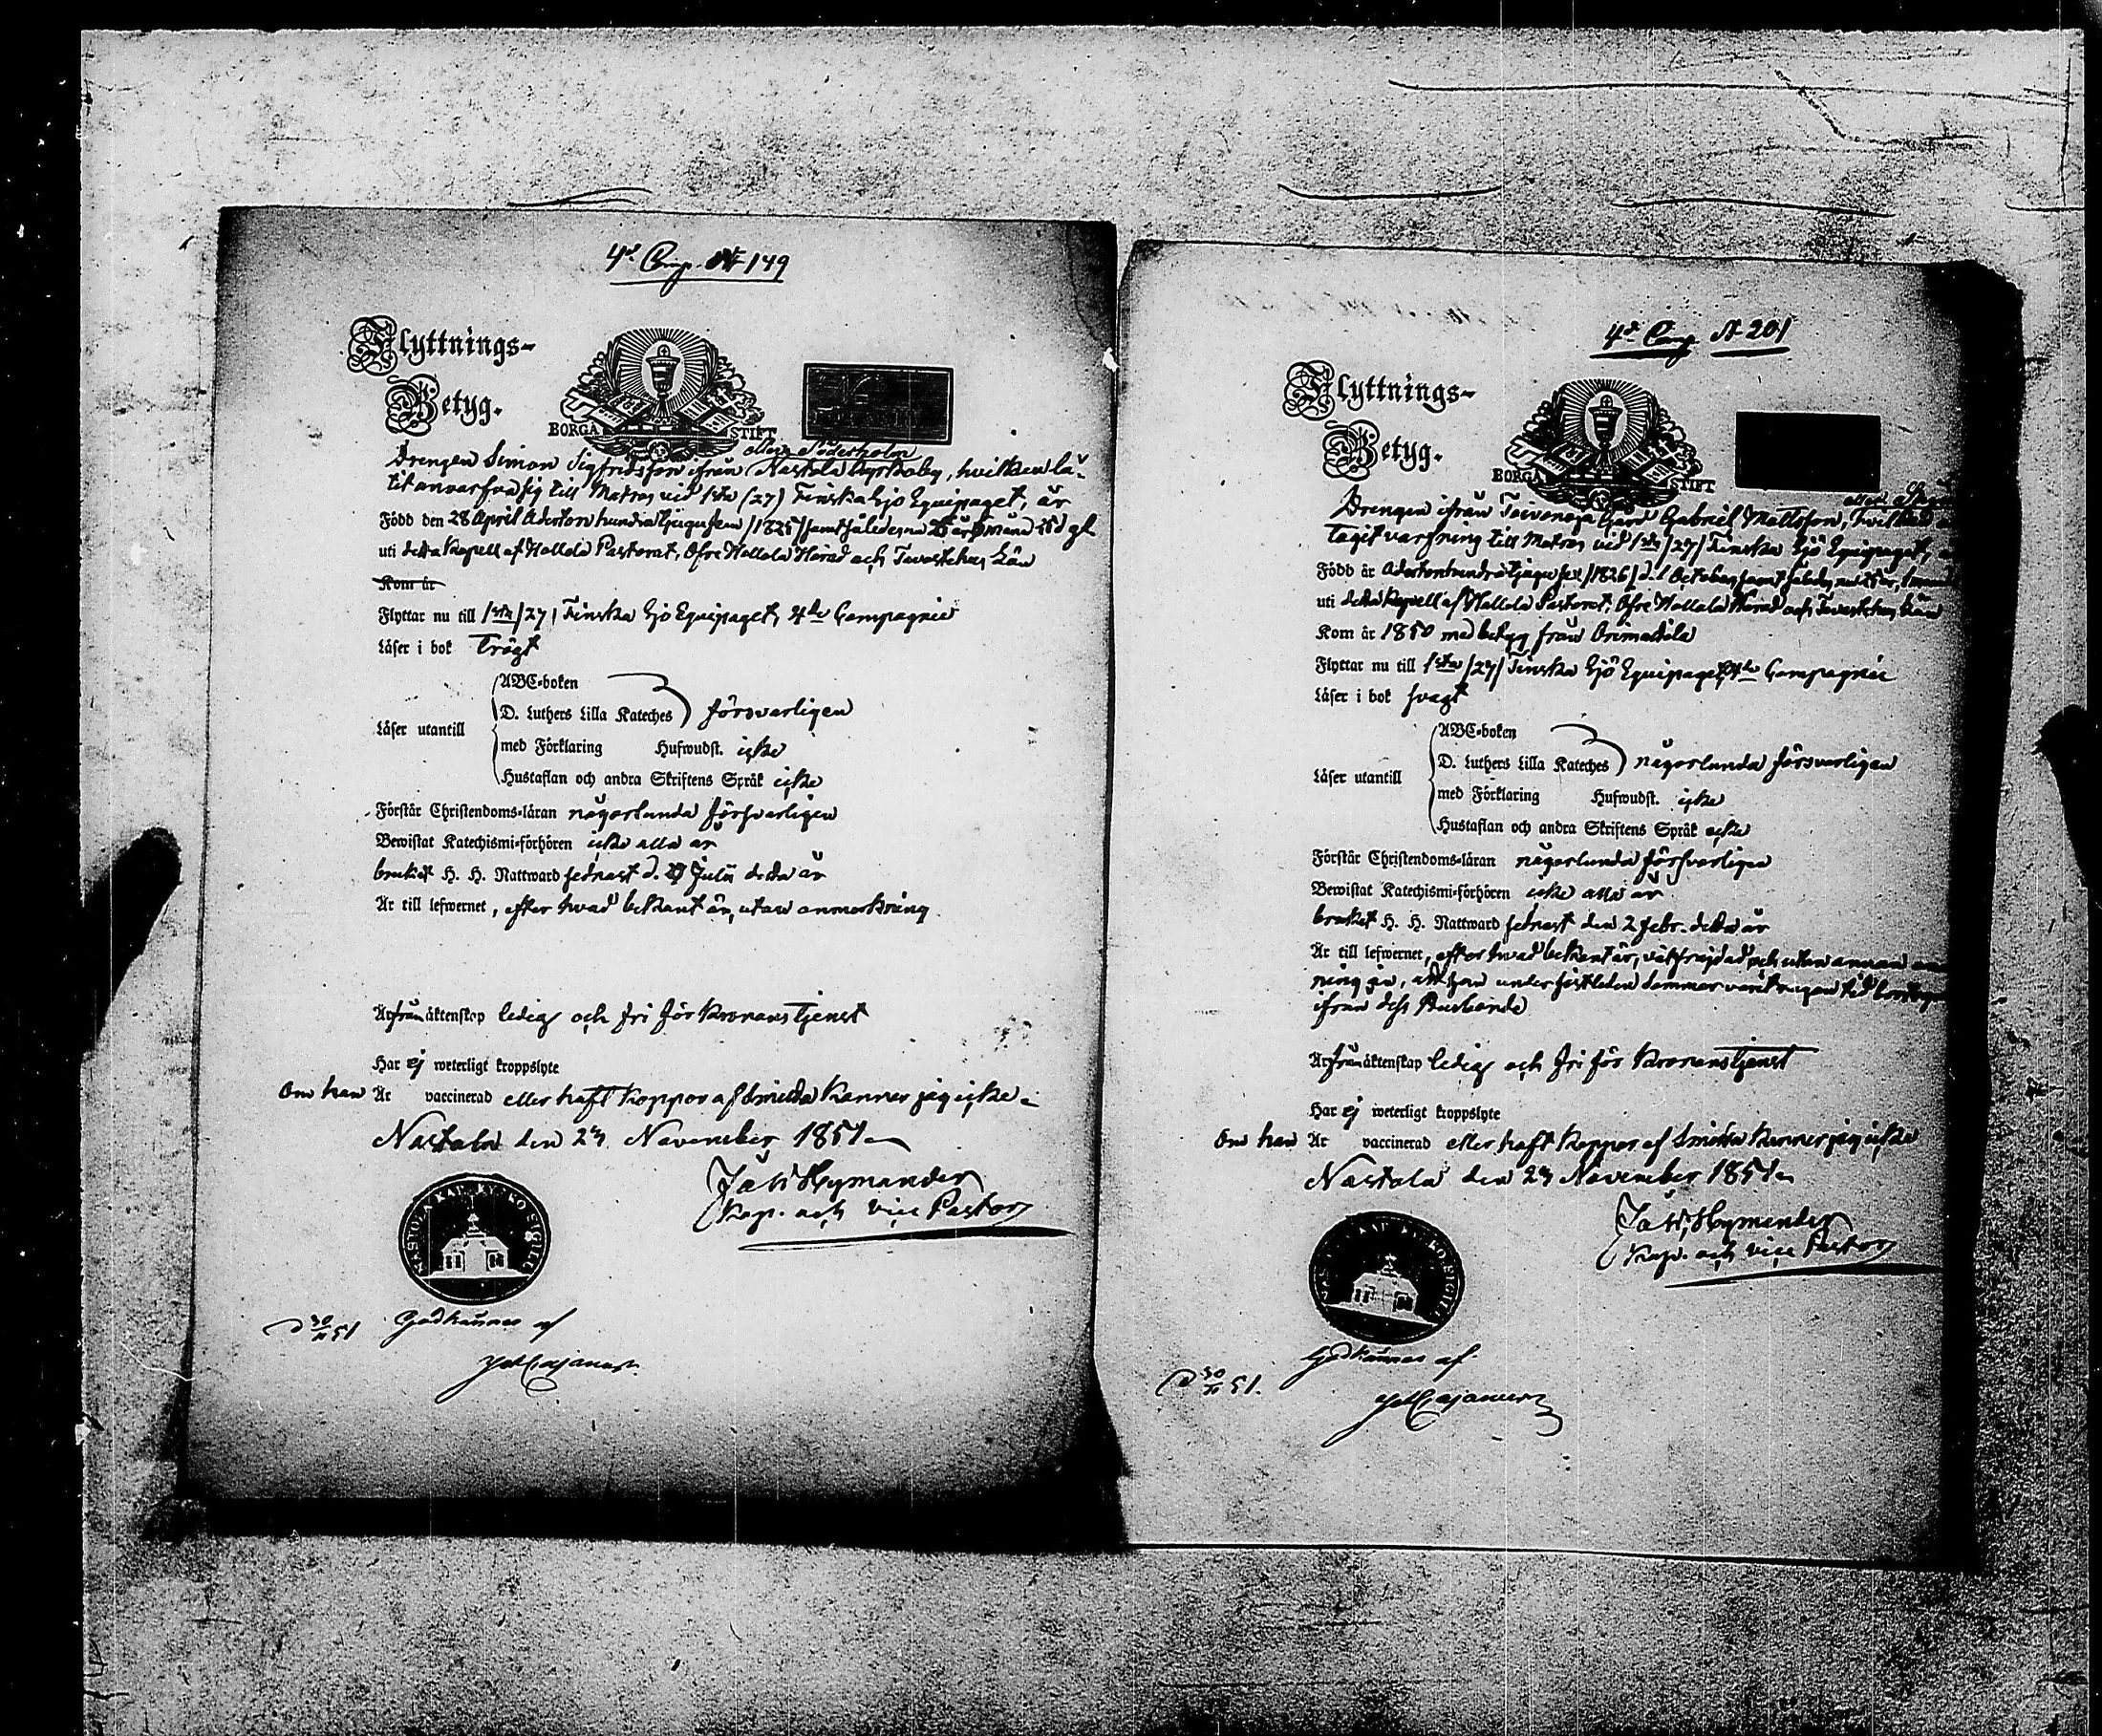 4de Comp. № 149
Flyttnings-
Betyg.
BORGÅ STIFT
eller Söderholm
Drengen Simon Sigfridsson ifrån Nastola Kyrkoby, hvilken lå-
tit anvarfva sig till Matros vid 1sta (27) Finska Sjö Equipaget, är
Född den 28 April Adertonhundratjugufem /1825/ samt således nu 26 år
uti detta Kapell af Hollola Pastorat, Öfre Hollola Härad och Tavastehus Län
Kom år
Flyttar nu till 1sta /27/ Finska Sjö Equipaget, 4de Compagnie
Läser i bok Trögt
ABC-boken
Läser utantill
D. Luthers Lilla Kateches försvarligen
med Förklaring Hufwudst. icke
Hustaflan och andra Skriftens Språk icke
Förstår Christendoms-läran någorlunda försvarligen
Bewistat Katechismi-förhören icke alla år
brukat H. H. Nattward sednast d. 27 Julii detta år
Är till lefwernet, efter hvad bekant är, utan anmärkning
Är från äktenskap ledig och fri för Kronans tjenst
Har ej weterligt kroppslyte
Om han Är vaccinerad eller haft Koppor af Smitta Känner jag icke.
Nastola den 27 November 1851
Joh: Hymander
Kap. och vice Pastor
NASTOLA KAP. KYRKO SIGILL
d 30/11 51 Godkännes af
4de Comp № 201
Flyttnings-
Betyg.
BORGÅ STIFT
eller
Drengen ifrån Toivonoja Gård Gabriel Mattsson, hvilken
tagit varfning till Matros vid 1sta /27/ Finska Sjö Equipaget,
Född år Adertonhundratjugusex /1826/ d. 1 October samt således nu 25 år, 1 månad
uti detta Kapell af Hollola Pastorat, Öfre Hollola Härad och Tavastehus Län
Kom år 1850 med betyg från Orimattila
Flyttar nu till 1sta /27/ Finska Sjö Equipaget, 4de Compagnie
Läser i bok svagt
ABC-boken
Läser utantill
D. Luthers Lilla Kateches någorlunda försvarligen
med Förklaring Hufwudst. icke
Hustaflan och andra Skriftens Språk icke
Förstår Christendoms-läran någorlunda försvarligen
Bewistat Katechismi-förhören icke alla år
brukat H. H. Nattward sednast den 2 Febr. detta år
Är till lefwernet, efter hvad bekant är, välfräjdad och utan annan
ning än, att han under sistleden Sommar varit någon tid
ifrån dess Husbonde
Är från äktenskap ledig och fri för Kronans tjenst
Har ej weterligt kroppslyte
Om han Är vaccinerad eller haft Koppor af Smitta Känner jag icke
Nastola den 27 November 1851
Joh: Hymander
Kap. och vice Pastor
NASTOLA KAP. KYRKO SIGILL
Godkännes af
d 30/11 51.